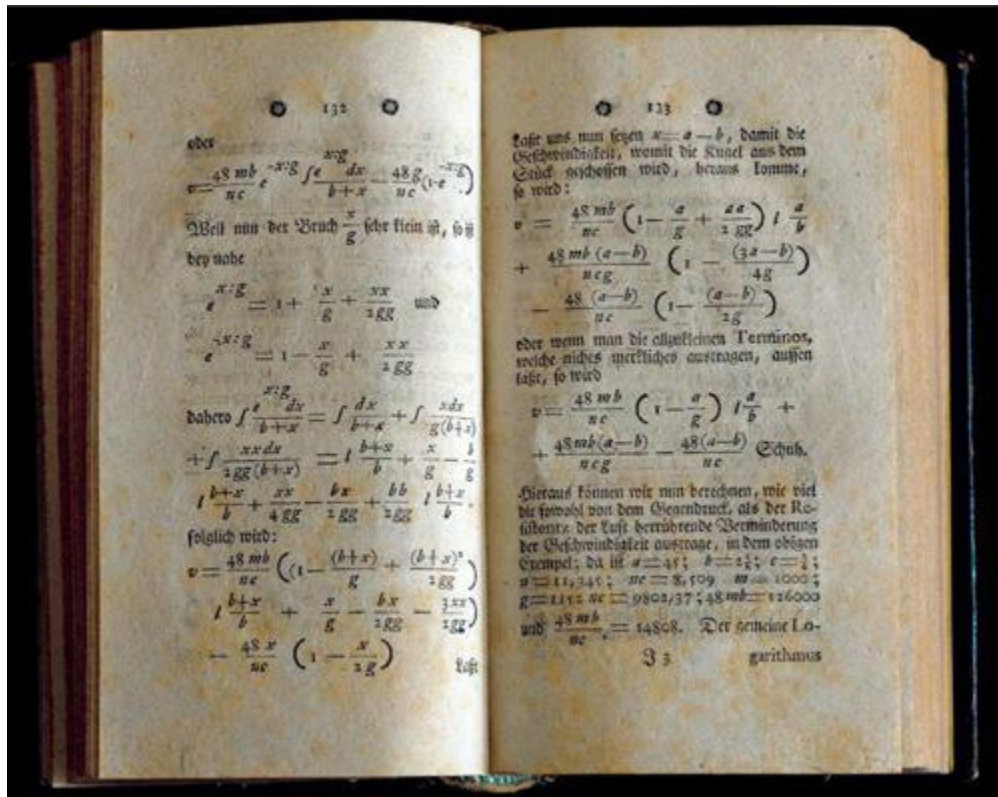 132
oder
v = 48 mb/nc e^-x:g ∫ e^x:g dx/b+x — 48 g/nc (1-e^-x:g)
Weil nun der Bruch x/g sehr klein ist, so ist
bey nahe
e^x:g = 1 + x/g + xx/2gg und
e^-x:g = 1 — x/g + xx/2gg
dahero ∫ e^x:g dx/b+x = ∫ dx/b+x + ∫ xdx/g(b+x)
+ ∫ xxdx/2gg(b+x) = l b+x/b + x/g — b/g
l b+x/b + xx/4gg — bx/2gg + bb/2gg l b+x/b.
folglich wird:
v = 48 mb/nc ((1 — (b+x)/g + (b+x)²/2gg)
l b+x/b + x/g — bx/2gg — 3xx/2gg)
— 48 x/nc (1 — x/2g)
Laßt
133
Laßt uns nun setzen x = a — b, damit die
Geschwindigkeit, womit die Kugel aus dem
Stück geschossen wird, heraus komme,
so wird:
v = 48 mb/nc (1 — a/g + aa/2gg) l a/b
+ 48 mb (a—b)/ncg (1 — (3a—b)/4g)
— 48 (a—b)/nc (1 — (a—b)/2g)
oder wenn man die allzukleinen Terminos,
welche nichts merkliches austragen, aussen
läßt, so wird
v = 48 mb/nc (1 — a/g) l a/b +
+ 48mb(a—b)/ncg — 48(a—b)/nc Schuh.
Hieraus können wir nun berechnen, wie viel
die sowohl von dem Gegendruck, als der Re-
sistentz der Luft herrührende Verminderung
der Geschwindigkeit austrage, in dem obigen
Exempel; da ist a = 45; b = 2⅝; c = ¾;
n = 11,345; nc = 8,509 m = 1000;
g = 1152 nc = 9802,37; 48 mb = 126000
und 48 mb/nc = 14808. Der gemeine Lo-
J 3 garithmus